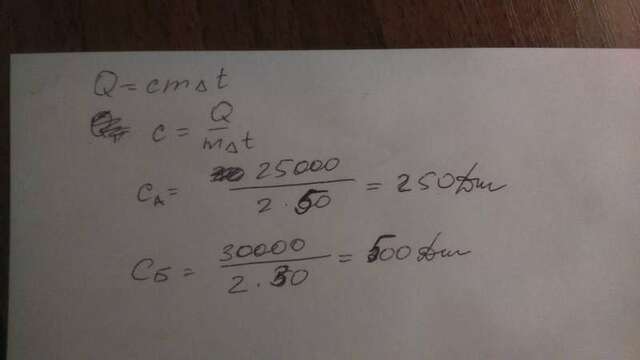 Q = cm△t
c = Q/m△t
cА = 25000/2·50 = 250 Дж
cБ = 30000/2·30 = 500 Дж